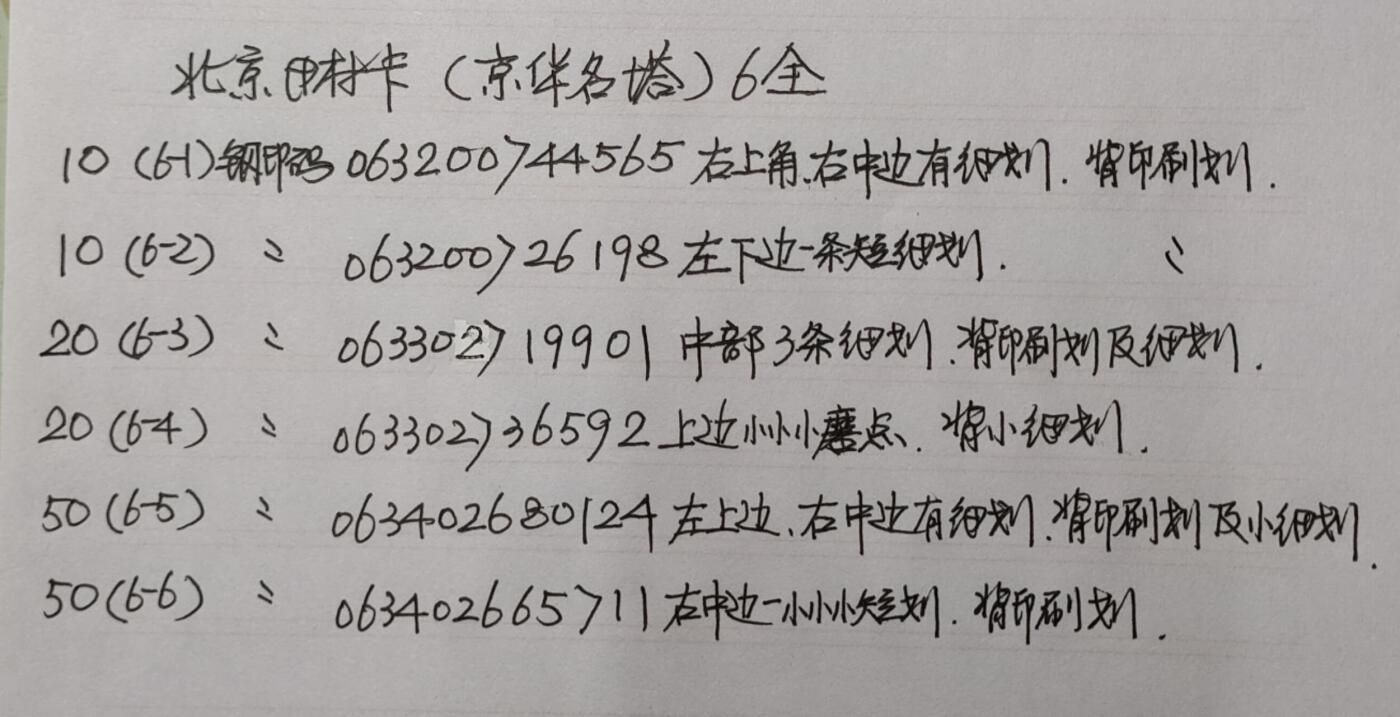 北京田村卡(京华名塔)6全
10(6-1)钢印码063200744565右上角、右中边有细划.背印刷划.
10(6-2) 〃 063200726198左下边一条短细划. 〃
20(6-3) 〃 063302719901中部3条细划.背印刷划及细划.
20(6-4) 〃 063302736592上边小小小磨点、背小细划.
50(6-5) 〃 063402680124左上边、右中边有细划.背印刷划及小细划.
50(6-6) 〃 063402665711右中边一小小小短划.背印刷划.